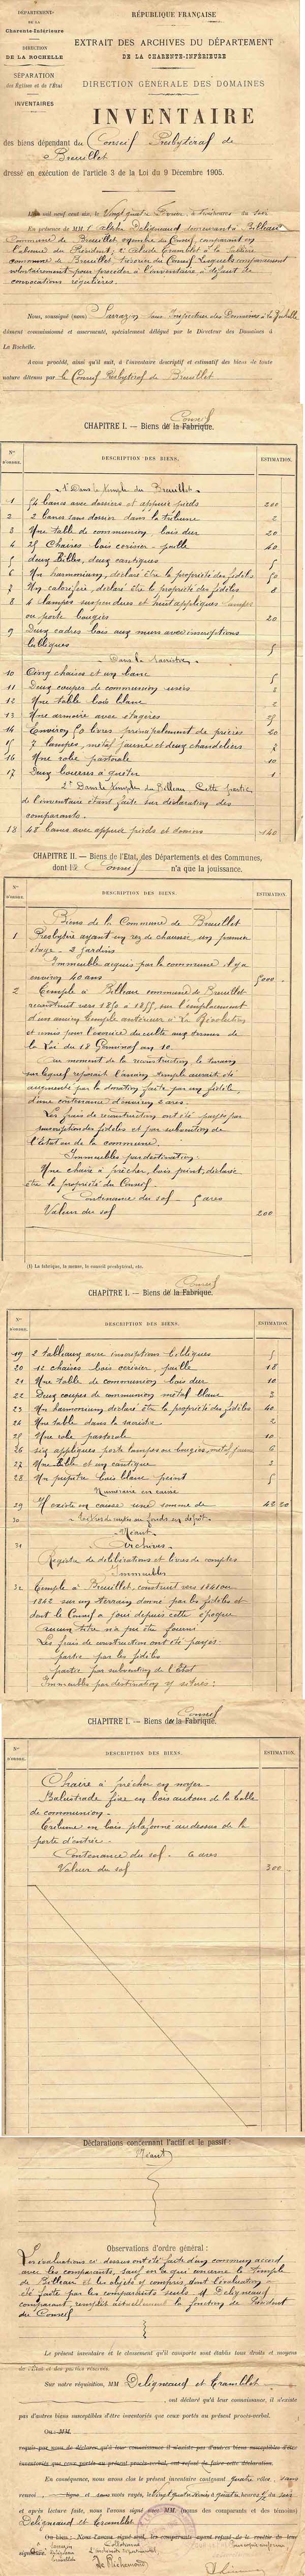 DÉPARTEMENT
DE LA
Charente-Inférieure
DIRECTION
DE LA ROCHELLE
SÉPARATION
des Églises et de l'État
INVENTAIRES
RÉPUBLIQUE FRANÇAISE
EXTRAIT DES ARCHIVES DU DÉPARTEMENT
DE LA CHARENTE-INFÉRIEURE
DIRECTION GÉNÉRALE DES DOMAINES
INVENTAIRE
des biens dépendant du Conseil Presbytéral de
Breuillet
dressé en exécution de l'article 3 de la Loi du 9 Décembre 1905.
L'an mil neuf cent six, le Vingt quatre Février, à trois heures du soir
En présence de MM. 1° Deligneaud demeurant à Billeau
Commune de Breuillet membre du Conseil, comparant en
l'absence du Président; 2° Cramblet à la
commune de Breuillet, trésorier du Conseil lesquels comparaissent
volontairement pour procéder à l'inventaire à défaut de
convocations régulières.
Nous, soussigné (nom) Sarrazin Sous Inspecteur des Domaines à La Rochelle
dûment commissionné et assermenté, spécialement délégué par le Directeur des Domaines à
La Rochelle.
Avons procédé, ainsi qu'il suit, à l'inventaire descriptif et estimatif des biens de toute
nature détenus par le Conseil Presbytéral de Breuillet
Conseil
CHAPITRE I. — Biens de la Fabrique.
Nos D'ORDRE. DESCRIPTION DES BIENS. ESTIMATION.
1° Dans le Temple du Breuillet.
1 54 bancs avec dossiers et appuis pieds 200
2 2 bancs sans dossier dans la tribune 2
3 Une table de communion bois dur 20
4 25 Chaises bois cerisier paille 40
5 deux Bibles, deux cantiques 5
6 Un harmonium, déclaré être la propriété des fidèles 50
7 Un calorifère, déclaré être la propriété des fidèles 8
8 4 lampes suspendues et huit appliques lampes
ou porte bougies 20
9 Deux cadres bois aux murs avec inscriptions
bibliques 5
Dans la Sacristie
10 Cinq chaises et un banc 5
11 Deux coupes de communion usées 2
12 Une table bois blanc 2
13 Une armoire avec étagères
14 Environ 50 livres principalement de prières 20
15 7 lampes, métal jaune et deux chandeliers 7
16 Une robe pastorale 10
17 Deux bourses à quêter 1
2° Dans le Temple du Billeau. Cette partie
de l'inventaire étant faite sur déclaration des
comparants.
18 48 bancs avec appuis pieds et dossiers 140
CHAPITRE II. — Biens de l'Etat, des Départements et des Communes,
dont le Conseil n'a que la jouissance.
Nos D'ORDRE. DESCRIPTION DES BIENS. ESTIMATION.
Biens de la Commune de Breuillet
1 Presbytère ayant un rez de chaussée, un premier
étage - 2 jardins
Immeuble acquis par la commune il y a
environ 40 ans 5000
2 Temple à Billeau commune de Breuillet
reconstruit vers 1850 à 1855, sur l'emplacement
d'un ancien Temple antérieur à la Révolution
et remis pour l'exercice du culte aux termes de
la Loi du 18 Germinal an 10.
Au moment de la reconstruction, le terrain
sur lequel reposait l'ancien Temple aurait été
augmenté par la donation faite par un fidèle
d'une contenance d'environ 2 ares.
Les frais de reconstruction ont été payés par
souscription des fidèles et par subvention de
l'état ou de la commune.
Immeubles par destination:
Une chaire à prêcher, bois peint, déclarée
être la propriété du Conseil
Contenance du sol - 5 ares
Valeur du sol 200
(1) La fabrique, la mense, le conseil presbytéral, etc.
Conseil
CHAPITRE I. — Biens de la Fabrique.
Nos D'ORDRE. DESCRIPTION DES BIENS. ESTIMATION.
19 2 tableaux avec inscriptions bibliques 5
20 12 chaises bois cerisier, paille 18
21 Une table de communion bois dur 10
22 Deux coupes de communion métal blanc 3
23 Un harmonium, déclaré être la propriété des fidèles 40
24 Une table dans la sacristie 2
25 Une robe pastorale 10
26 six appliques porte lampes ou bougies, métal jaune 6
27 Une Bible et un cantique 3
28 Un pupitre bois blanc peint 5
Numéraire en caisse
29 Il existe en caisse une somme de 42 20
30
Néant
31 Archives
Registre de délibérations et livres de comptes
Immeubles
32 Temple à Breuillet, construit vers 1841 ou
1842 sur un terrain donné par les fidèles et
dont le Conseil a joui depuis cette époque
Aucun titre n'a pu être fourni.
Les frais de construction ont été payés:
partie par les fidèles
partie par subvention de l'Etat
Immeubles par destination y situés:
Conseil
CHAPITRE I. — Biens de la Fabrique.
Nos D'ORDRE. DESCRIPTION DES BIENS. ESTIMATION.
Chaire à prêcher en noyer -
Balustrade fixe en bois autour de la table
de communion -
Tribune en bois plafonné au dessus de la
porte d'entrée -
Contenance du sol - 6 ares
Valeur du sol 300
Déclarations concernant l'actif et le passif :
Néant
Observations d'ordre général :
Les évaluations ci dessus ont été faites d'un commun accord
avec les comparants, sauf en ce qui concerne le Temple
de Billeau et les objets y compris, dont l'évaluation a
été faite par les comparants seuls. M. Deligneaud
comparant, remplit actuellement la fonction de Président
du Conseil
Le présent inventaire et le classement qu'il comporte sont établis tous droits et moyens
de l'État et des parties réservés.
Sur notre réquisition, MM Deligneaud et Cramblet
, ont déclaré qu'à leur connaissance, il n'existe
pas d'autres biens susceptibles d'être inventoriés que ceux portés au présent procès-verbal.
Ou : MM.
requis par nous de déclarer qu'à leur connaissance il n'existe pas d'autres biens susceptibles d'être
inventoriés que ceux portés au présent procès-verbal, ont refusé de faire cette déclaration.
En conséquence, nous avons clos le présent inventaire contenant quatre rôles, sans
renvoi, ligne et sans mots rayés, le vingt quatre février à quatre heures 1/2 du soir
et après lecture faite, nous l'avons signé avec MM. (noms des comparants et des témoins)
Deligneaud et Cramblet.